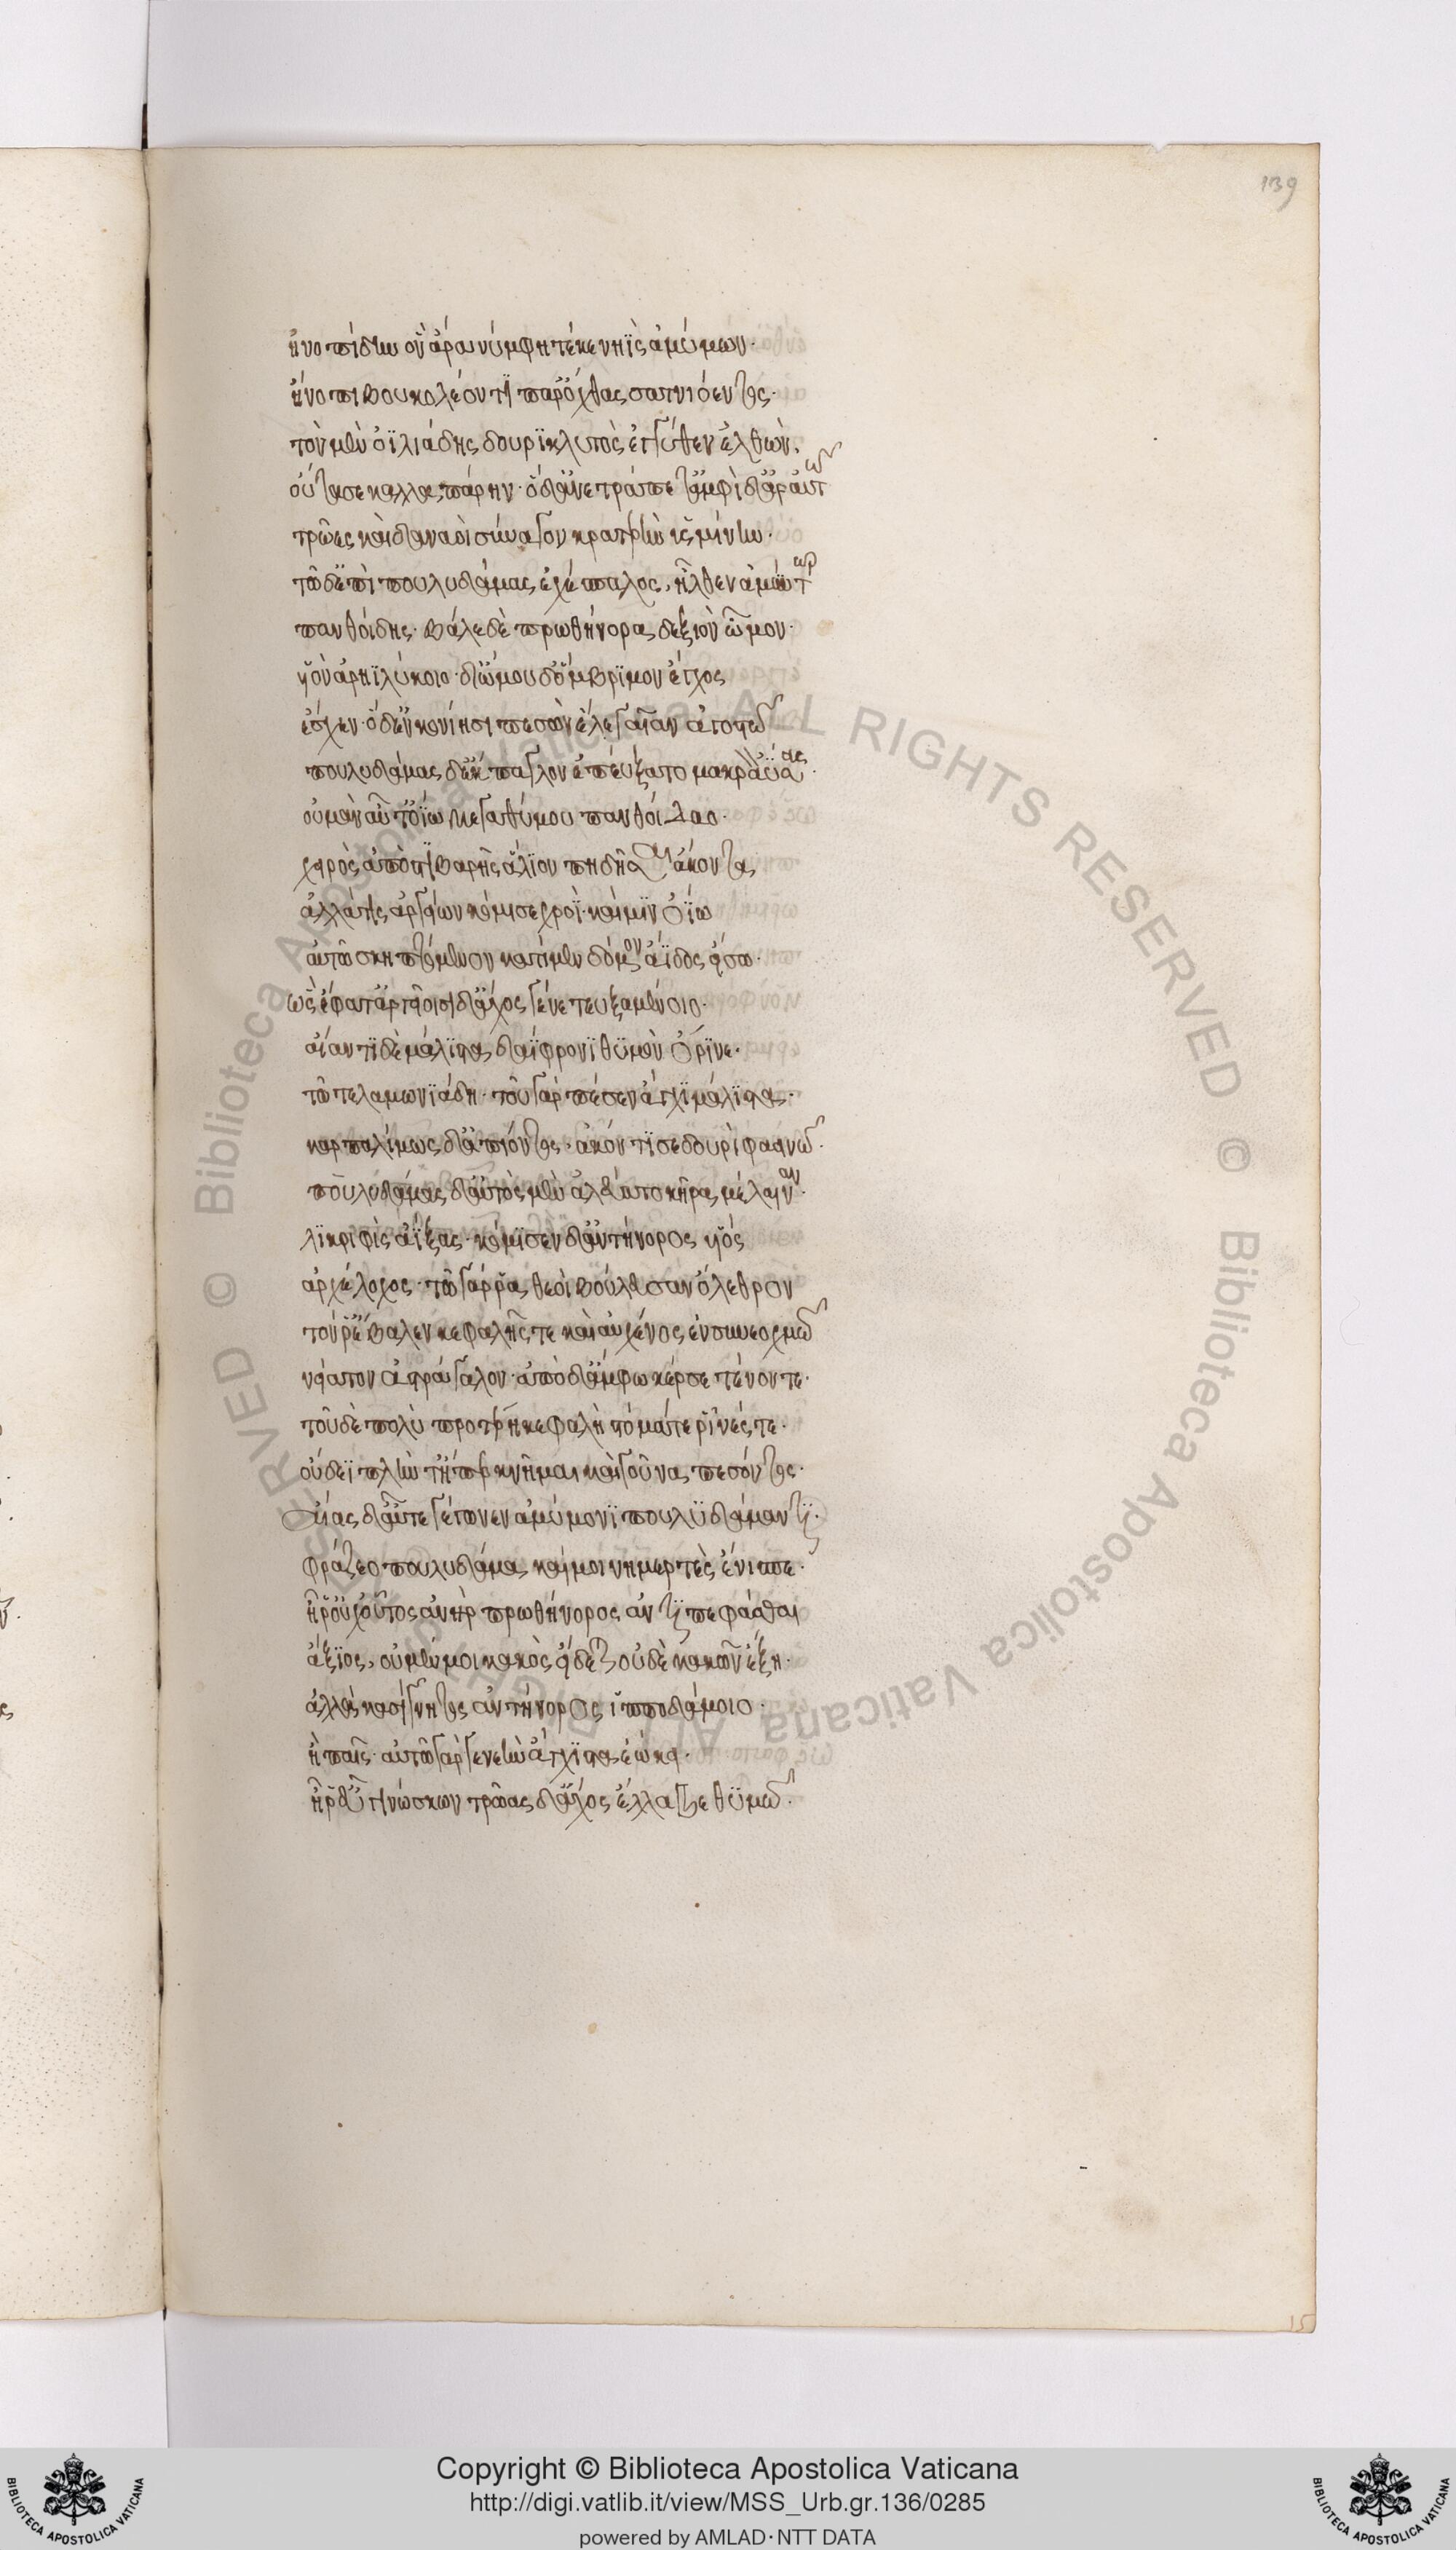 139
ἠνοπίδην ὃν ἄρα νύμφη τέκε νηῒς ἀμύμων·
ἤνοπι βουκολέοντϊ παρ' ὄχθας σατνιόεντος·
τὸν μὲν ὀϊλιάδης δουρϊκλυτὸς ἐγγύθεν ἐλθὼν,
οὔτασε καλλαπάρην· ὁ δ' ἀνετράπετ' ἀμφὶ δ' ἄρ' αὐτῶ
τρῶες καὶ δαναοὶ σύναγον κρατερὴν ὑσμίνην·
τῶ δ' ἐπὶ πουλυδάμας ἐγχέσπαλος, ἦλθεν ἀμύντωρ
πανθοίδης· βάλε δὲ προθήνορα δεξιὸν ὦμον·
υἱὸν ἀρηϊλύκοιο· δι' ὤμου δ' ὄμβρϊμον ἔγχος
ἔσχεν· ὁ δ' ἐν κονίησι πεσὼν ἕλε γαῖαν ἀγοστῶ
πουλυδάμας δ' ἔκπαγλον ἐπεύξατο μακρὰ ἀΰσας·
οὐ μὰν αὖτ' ὀΐω μεγαθύμου πανθοίδαο·
χειρὸς ἄπο στιβαρῆς ἅλϊον πηδῆσαι ἄκοντα
ἀλλά τις ἀργείων κόμισε χροῒ· καί μϊν ὀΐω
αὐτῶ σκηπτόμενον κατίμεν δόμον ἄϊδος εἴσω·
ὣς ἔφατ' ἀργείοισι δ' ἄχος γένετ' εὐξαμένοιο·
αἴαντϊ δὲ μάλϊστα δαΐφρονϊ θϋμὸν ὄρϊνε·
τῶ τελαμωνϊάδη· τοῦ γὰρ πέσεν ἄγχϊ μάλϊστα·
καρπαλίμως δ' ἀπιόντος· ἀκόντϊσε δουρὶ φαεινῶ·
πουλυδάμας δ' αὐτὸς μὲν ἀλεύατο κῆρα μέλαιναν·
λϊκριφὶς ἀΐξας· κόμϊσεν δ' ἀντήνορος υἱός
ἀρχέλοχος· τῶ γάρ ῥα θεοὶ βούλευσαν ὄλεθρον
τόν ῥ' ἔβαλεν κεφαλῆς τε καὶ αὐχένος ἐν συνεοχμῶ
νείατον ἀστράγαλον· ἀπὸ δ' ἄμφω κέρσε τένοντε·
τοῦ δὲ πολὺ προτέρη κεφαλὴ στόμα τε ῥῖνές τε·
οὔδεϊ πλῆντ' ἤπερ κνῆμαι καὶ γοῦνα πεσόντος·
αἴας δ' αὖτ' ἐγέγωνεν ἀμύμονϊ πουλϋδάμαντϊ·
φράζεο πουλυδάμα καί μοι νημερτὲς ἔνισπε·
ἦ ῥ' οὐχ οὗτος ἀνὴρ προθήνορος ἀντὶ πεφάσθαι
ἄξϊος, οὐ μέν μοι κακὸς εἴδεται οὐδὲ κακῶν ἔξη·
ἀλλὰ κασίγνητος ἀντήνορος ἱπποδάμοιο·
ἢ παῖς· αὐτῶ γὰρ γενεὴν ἄγχϊστα ἐώκει·
ἦ ῥ' εὖ γινώσκων τρῶας δ' ἄχος ἔλλαβε θϋμῶ·
15
Copyright © Biblioteca Apostolica Vaticana
http://digi.vatlib.it/view/MSS_Urb.gr.136/0285
powered by AMLAD·NTT DATA